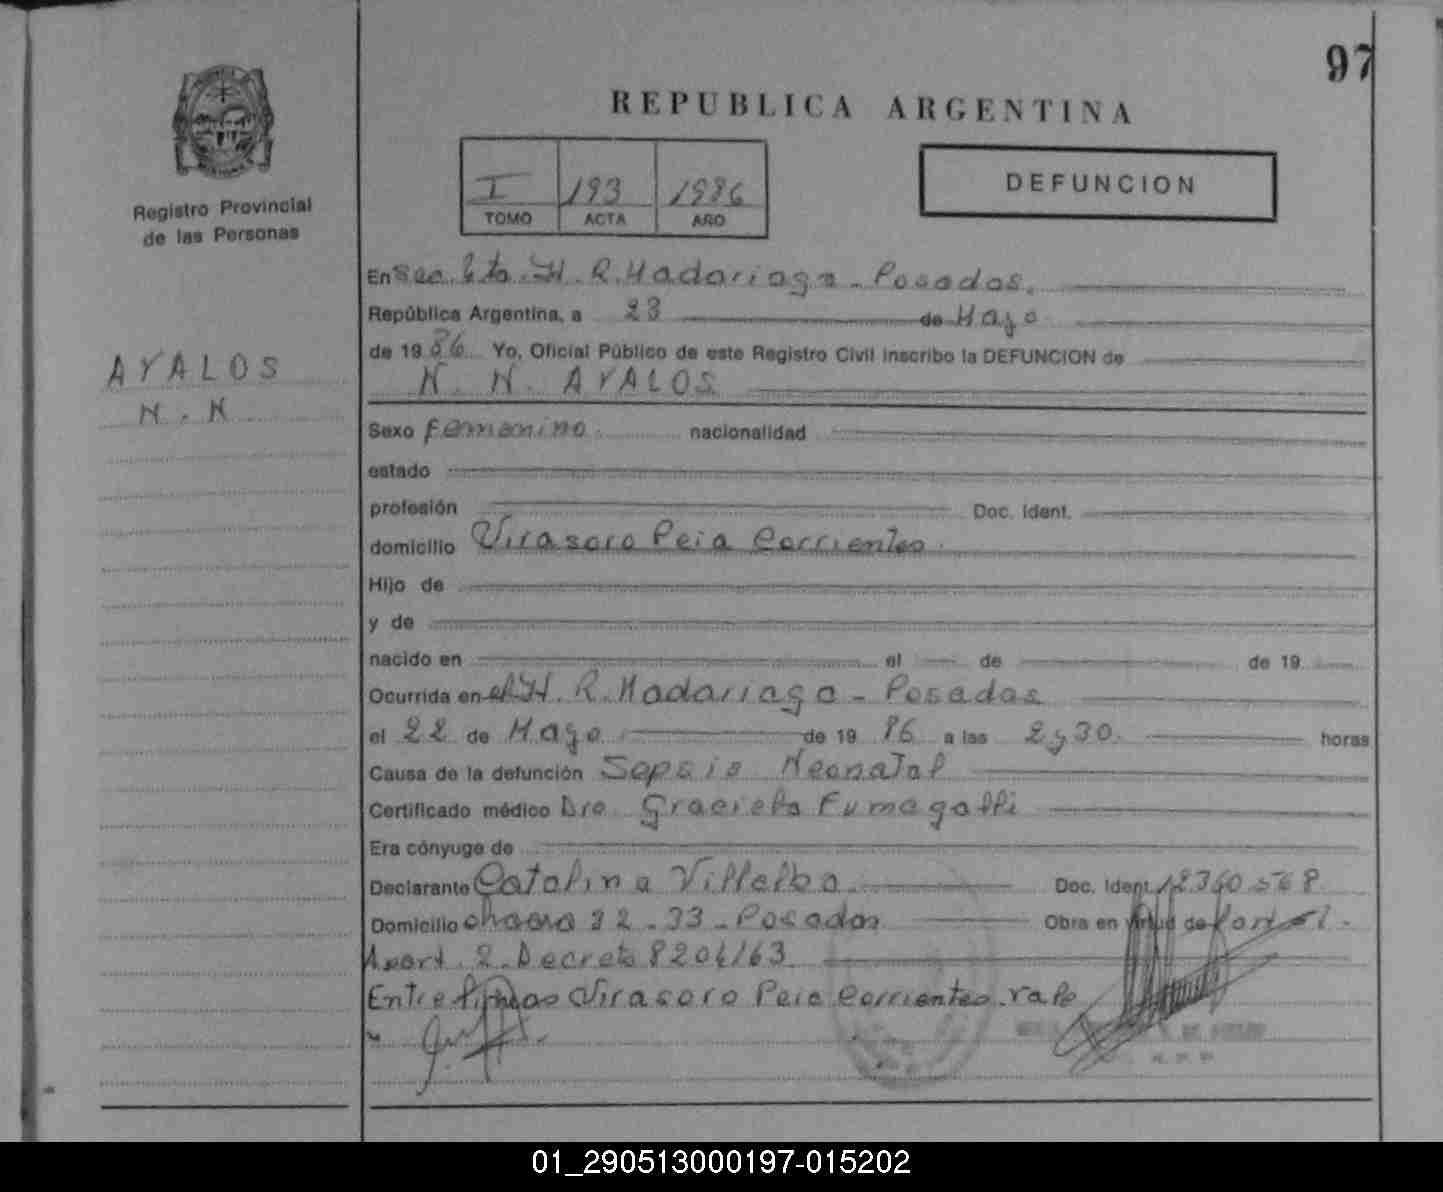 97
REPUBLICA ARGENTINA
I 193 1986
TOMO ACTA AÑO
DEFUNCION
Registro Provincial
de las Personas
AYALOS
N. N
En Sec. 6ta. H. R. Madariaga - Posadas.
República Argentina, a 23 de Mayo
de 19 86 Yo, Oficial Público de este Registro Civil inscribo la DEFUNCION de
N. N. AYALOS
Sexo femenino. nacionalidad
estado
profesión Doc. Ident.
domicilio Virasoro Pcia Corrientes.
Hijo de
y de
nacido en el de de 19
Ocurrida en el H. R. Madariaga - Posadas
el 22 de Mayo de 19 86 a las 2 y 30. horas
Causa de la defunción Sepsis Neonatal
Certificado médico Dra. Graciela Fumagalli
Era cónyuge de
Declarante Catalina Villalba Doc. Ident. 12360568
Domicilio chacra 32-33 - Posadas Obra en virtud de
Apart. 2 - Decreto 8204/63
Entre lineas Virasoro Pcia Corrientes. vale
01_290513000197-015202